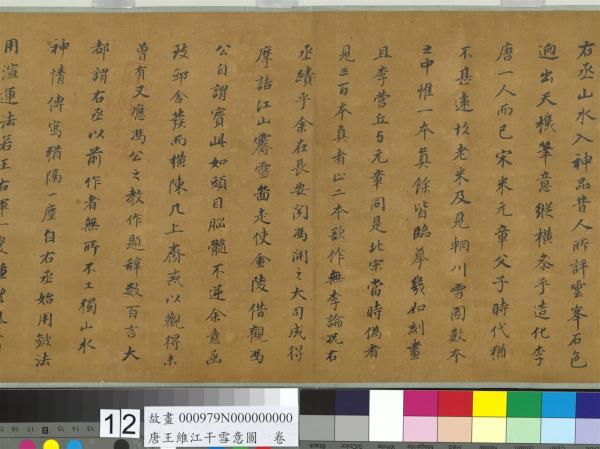 右丞山水入神品昔人所評雲峯石色
迥出天機筆意縱橫參乎造化李
唐一人而已宋米元章父子時代猶
不甚遠故老米及見輞川雪圖數本
之中惟一本真餘皆臨摹幾如刻畫
且李營丘與元章同是北宋當時偽者
見三百本真者止二本欲作無李論況右
丞蹟乎余在長安聞馮開之大司成得
摩詰江山霽雪圖走使金陵借觀馮
公自謂寶此如頭目腦髓不逆余意函
致邸舍發而橫陳几上齋戒以觀得未
曾有又應馮公之教作題辭數百言大
都謂右丞以前作者無所不工獨山水
神情傳寫猶隔一塵自右丞始用皴法
用渲運法若王右軍一變鍾
12
故畫 000979N000000000
唐王維江干雪意圖 卷